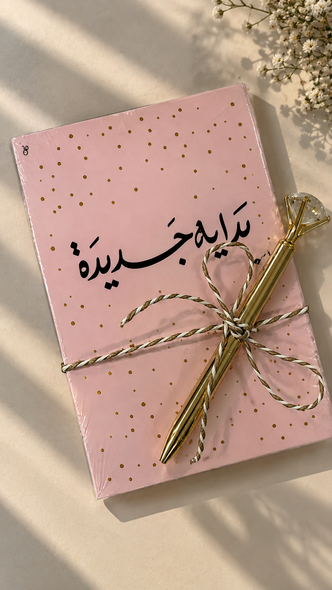 بَدايه جَديدَة